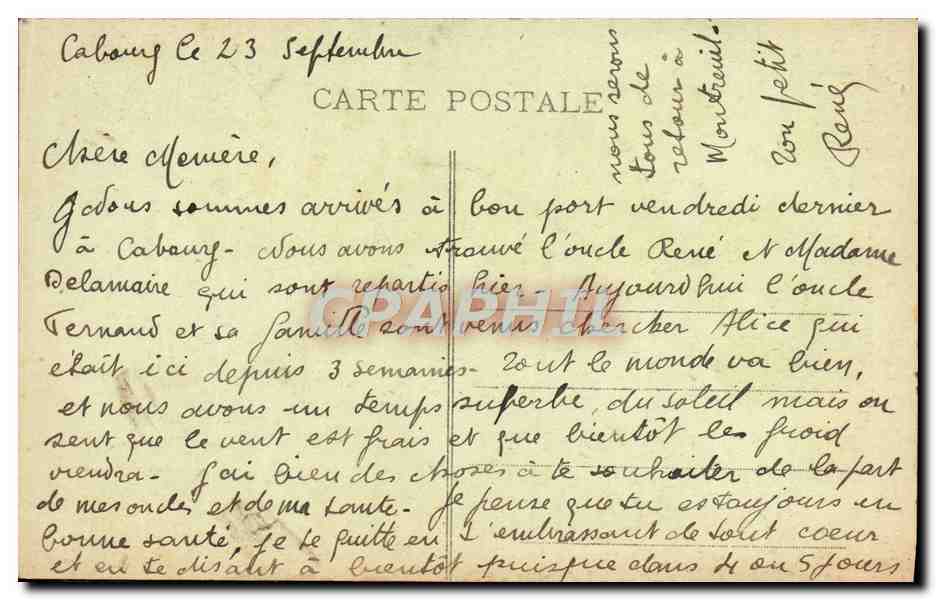 Cabourg le 23 septembre
CARTE POSTALE
Chère Memère,
Nous sommes arrivés à bon port vendredi dernier
à Cabourg - Nous avons trouvé l'oncle René et Madame
Delamaire qui sont repartis hier - Aujourd'hui l'oncle
Fernand et sa famille sont venus chercher Alice qui
était ici depuis 3 semaines - Tout le monde va bien,
et nous avons un temps superbe, du soleil mais on
sent que le vent est frais et que bientôt le froid
viendra - J'ai bien des choses à te souhaiter de la part
de mes oncles et de ma tante - Je pense que tu es toujours en
bonne santé, je te quitte en t'embrassant de tout coeur
et en te disant à bientôt puisque dans 4 ou 5 jours
nous serons
tous de
retour à
Montreuil.
Ton petit
René
CPAPHIL